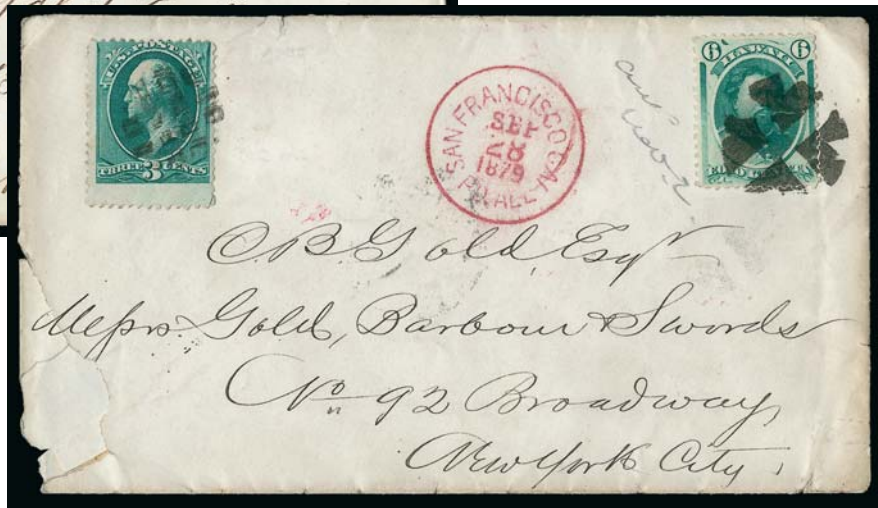 U.S. POSTAGE
THREE 3 CENTS
SAN FRANCISCO CAL.
SEP
28
1879
PAID ALL
6 HAWAII 6
C B Gold, Esqr
Messrs Gold, Barbour & Swords
No 92 Broadway,
New York City.